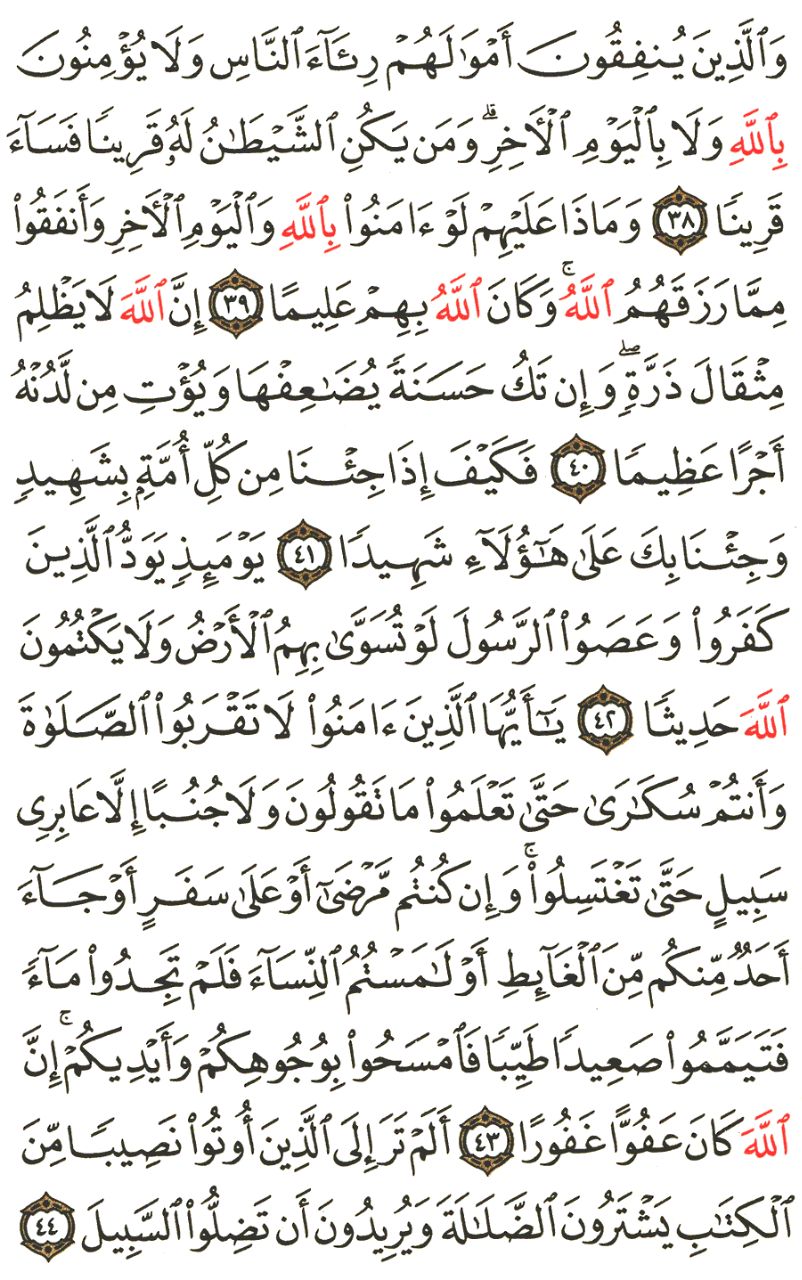 وَٱلَّذِينَ يُنفِقُونَ أَمْوَٰلَهُمْ رِئَآءَ ٱلنَّاسِ وَلَا يُؤْمِنُونَ
بِٱللَّهِ وَلَا بِٱلْيَوْمِ ٱلْأَخِرِ ۗ وَمَن يَكُنِ ٱلشَّيْطَٰنُ لَهُۥ قَرِينًا فَسَآءَ
قَرِينًا ٣٨ وَمَاذَا عَلَيْهِمْ لَوْ ءَامَنُوا۟ بِٱللَّهِ وَٱلْيَوْمِ ٱلْأَخِرِ وَأَنفَقُوا۟
مِمَّا رَزَقَهُمُ ٱللَّهُ ۚ وَكَانَ ٱللَّهُ بِهِمْ عَلِيمًا ٣٩ إِنَّ ٱللَّهَ لَا يَظْلِمُ
مِثْقَالَ ذَرَّةٍ ۖ وَإِن تَكُ حَسَنَةً يُضَٰعِفْهَا وَيُؤْتِ مِن لَّدُنْهُ
أَجْرًا عَظِيمًا ٤٠ فَكَيْفَ إِذَا جِئْنَا مِن كُلِّ أُمَّةٍۭ بِشَهِيدٍ
وَجِئْنَا بِكَ عَلَىٰ هَٰٓؤُلَآءِ شَهِيدًا ٤١ يَوْمَئِذٍ يَوَدُّ ٱلَّذِينَ
كَفَرُوا۟ وَعَصَوُا۟ ٱلرَّسُولَ لَوْ تُسَوَّىٰ بِهِمُ ٱلْأَرْضُ وَلَا يَكْتُمُونَ
ٱللَّهَ حَدِيثًا ٤٢ يَٰٓأَيُّهَا ٱلَّذِينَ ءَامَنُوا۟ لَا تَقْرَبُوا۟ ٱلصَّلَوٰةَ
وَأَنتُمْ سُكَٰرَىٰ حَتَّىٰ تَعْلَمُوا۟ مَا تَقُولُونَ وَلَا جُنُبًا إِلَّا عَابِرِى
سَبِيلٍ حَتَّىٰ تَغْتَسِلُوا۟ ۚ وَإِن كُنتُم مَّرْضَىٰٓ أَوْ عَلَىٰ سَفَرٍ أَوْ جَآءَ
أَحَدٌ مِّنكُم مِّنَ ٱلْغَآئِطِ أَوْ لَٰمَسْتُمُ ٱلنِّسَآءَ فَلَمْ تَجِدُوا۟ مَآءً
فَتَيَمَّمُوا۟ صَعِيدًا طَيِّبًا فَٱمْسَحُوا۟ بِوُجُوهِكُمْ وَأَيْدِيكُمْ ۚ إِنَّ
ٱللَّهَ كَانَ عَفُوًّا غَفُورًا ٤٣ أَلَمْ تَرَ إِلَى ٱلَّذِينَ أُوتُوا۟ نَصِيبًا مِّنَ
ٱلْكِتَٰبِ يَشْتَرُونَ ٱلضَّلَٰلَةَ وَيُرِيدُونَ أَن تَضِلُّوا۟ ٱلسَّبِيلَ ٤٤